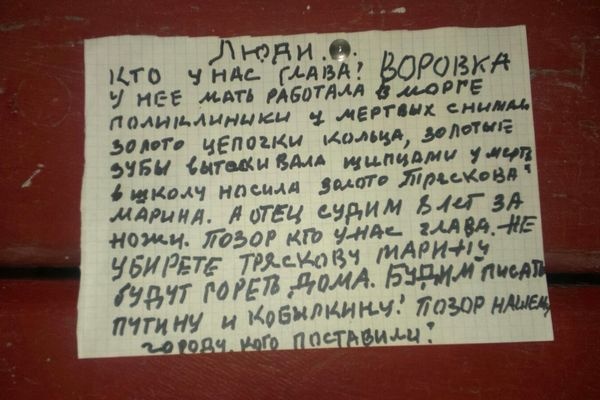 ЛЮДИ...
КТО У НАС ГЛАВА? ВОРОВКА
У НЕЕ МАТЬ РАБОТАЛА В МОРГЕ
ПОЛИКЛИНИКИ У МЕРТВЫХ СНИМАЛ
ЗОЛОТО ЦЕПОЧКИ КОЛЬЦА, ЗОЛОТЫЕ
ЗУБЫ ВЫТАСКИВАЛА ЩИПЦАМИ У МЕРТВ
В ШКОЛУ НОСИЛА ЗОЛОТО ТРЯСКОВА
МАРИНА. А ОТЕЦ СУДИМ 8 ЛЕТ ЗА
НОЖИ. ПОЗОР КТО У НАС ГЛАВА. НЕ
УБИРЕТЕ ТРЯСКОВУ МАРИНУ
БУДУТ ГОРЕТЬ ДОМА. БУДИМ ПИСАТЬ
ПУТИНУ И КОБЫЛКИНУ! ПОЗОР НАШЕМУ
ГОРОДУ. КОГО ПОСТАВИЛИ?